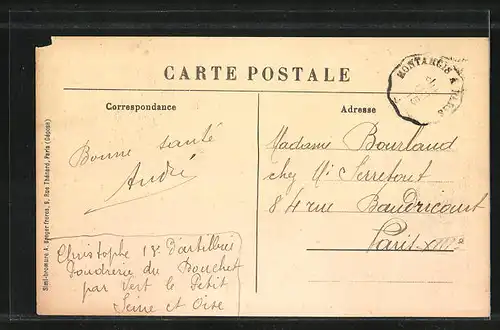 CARTE POSTALE
Correspondance
Adresse
MONTARGIS A
Bonne santé
André
Christophe 18e d'artillerie
Poudrerie du Bouchet
par Vert le Petit
Seine et Oise
Madame Bourland
chez Mr Serretout
84 rue Baudricourt
Paris XIIIe
Simi-bromure A. Breger frères, 9, Rue Thénard, Paris (Déposé)